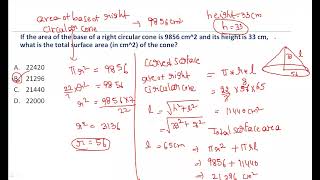 area of base of right
circular cone → 9856 cm²
height = 33cm
h = 33
If the area of the base of a right circular cone is 9856 cm^2 and its height is 33 cm,
what is the total surface area (in cm^2) of the cone?
A. 22420
B. 21296
C. 21440
D. 22000
πr² = 9856
22/7 r² = 9856
r² = 9856×7/22
r² = 3136
r = 56
Curved surface
area of right
circular cone
= π*r*l
= 22/7 × 56 × 65
= 11440 cm²
l = √h²+r²
= √33²+56²
l = 65cm
33
56
Total surface area
⇒ πr² + πrl
⇒ 9856 + 11440
⇒ 21296 cm²